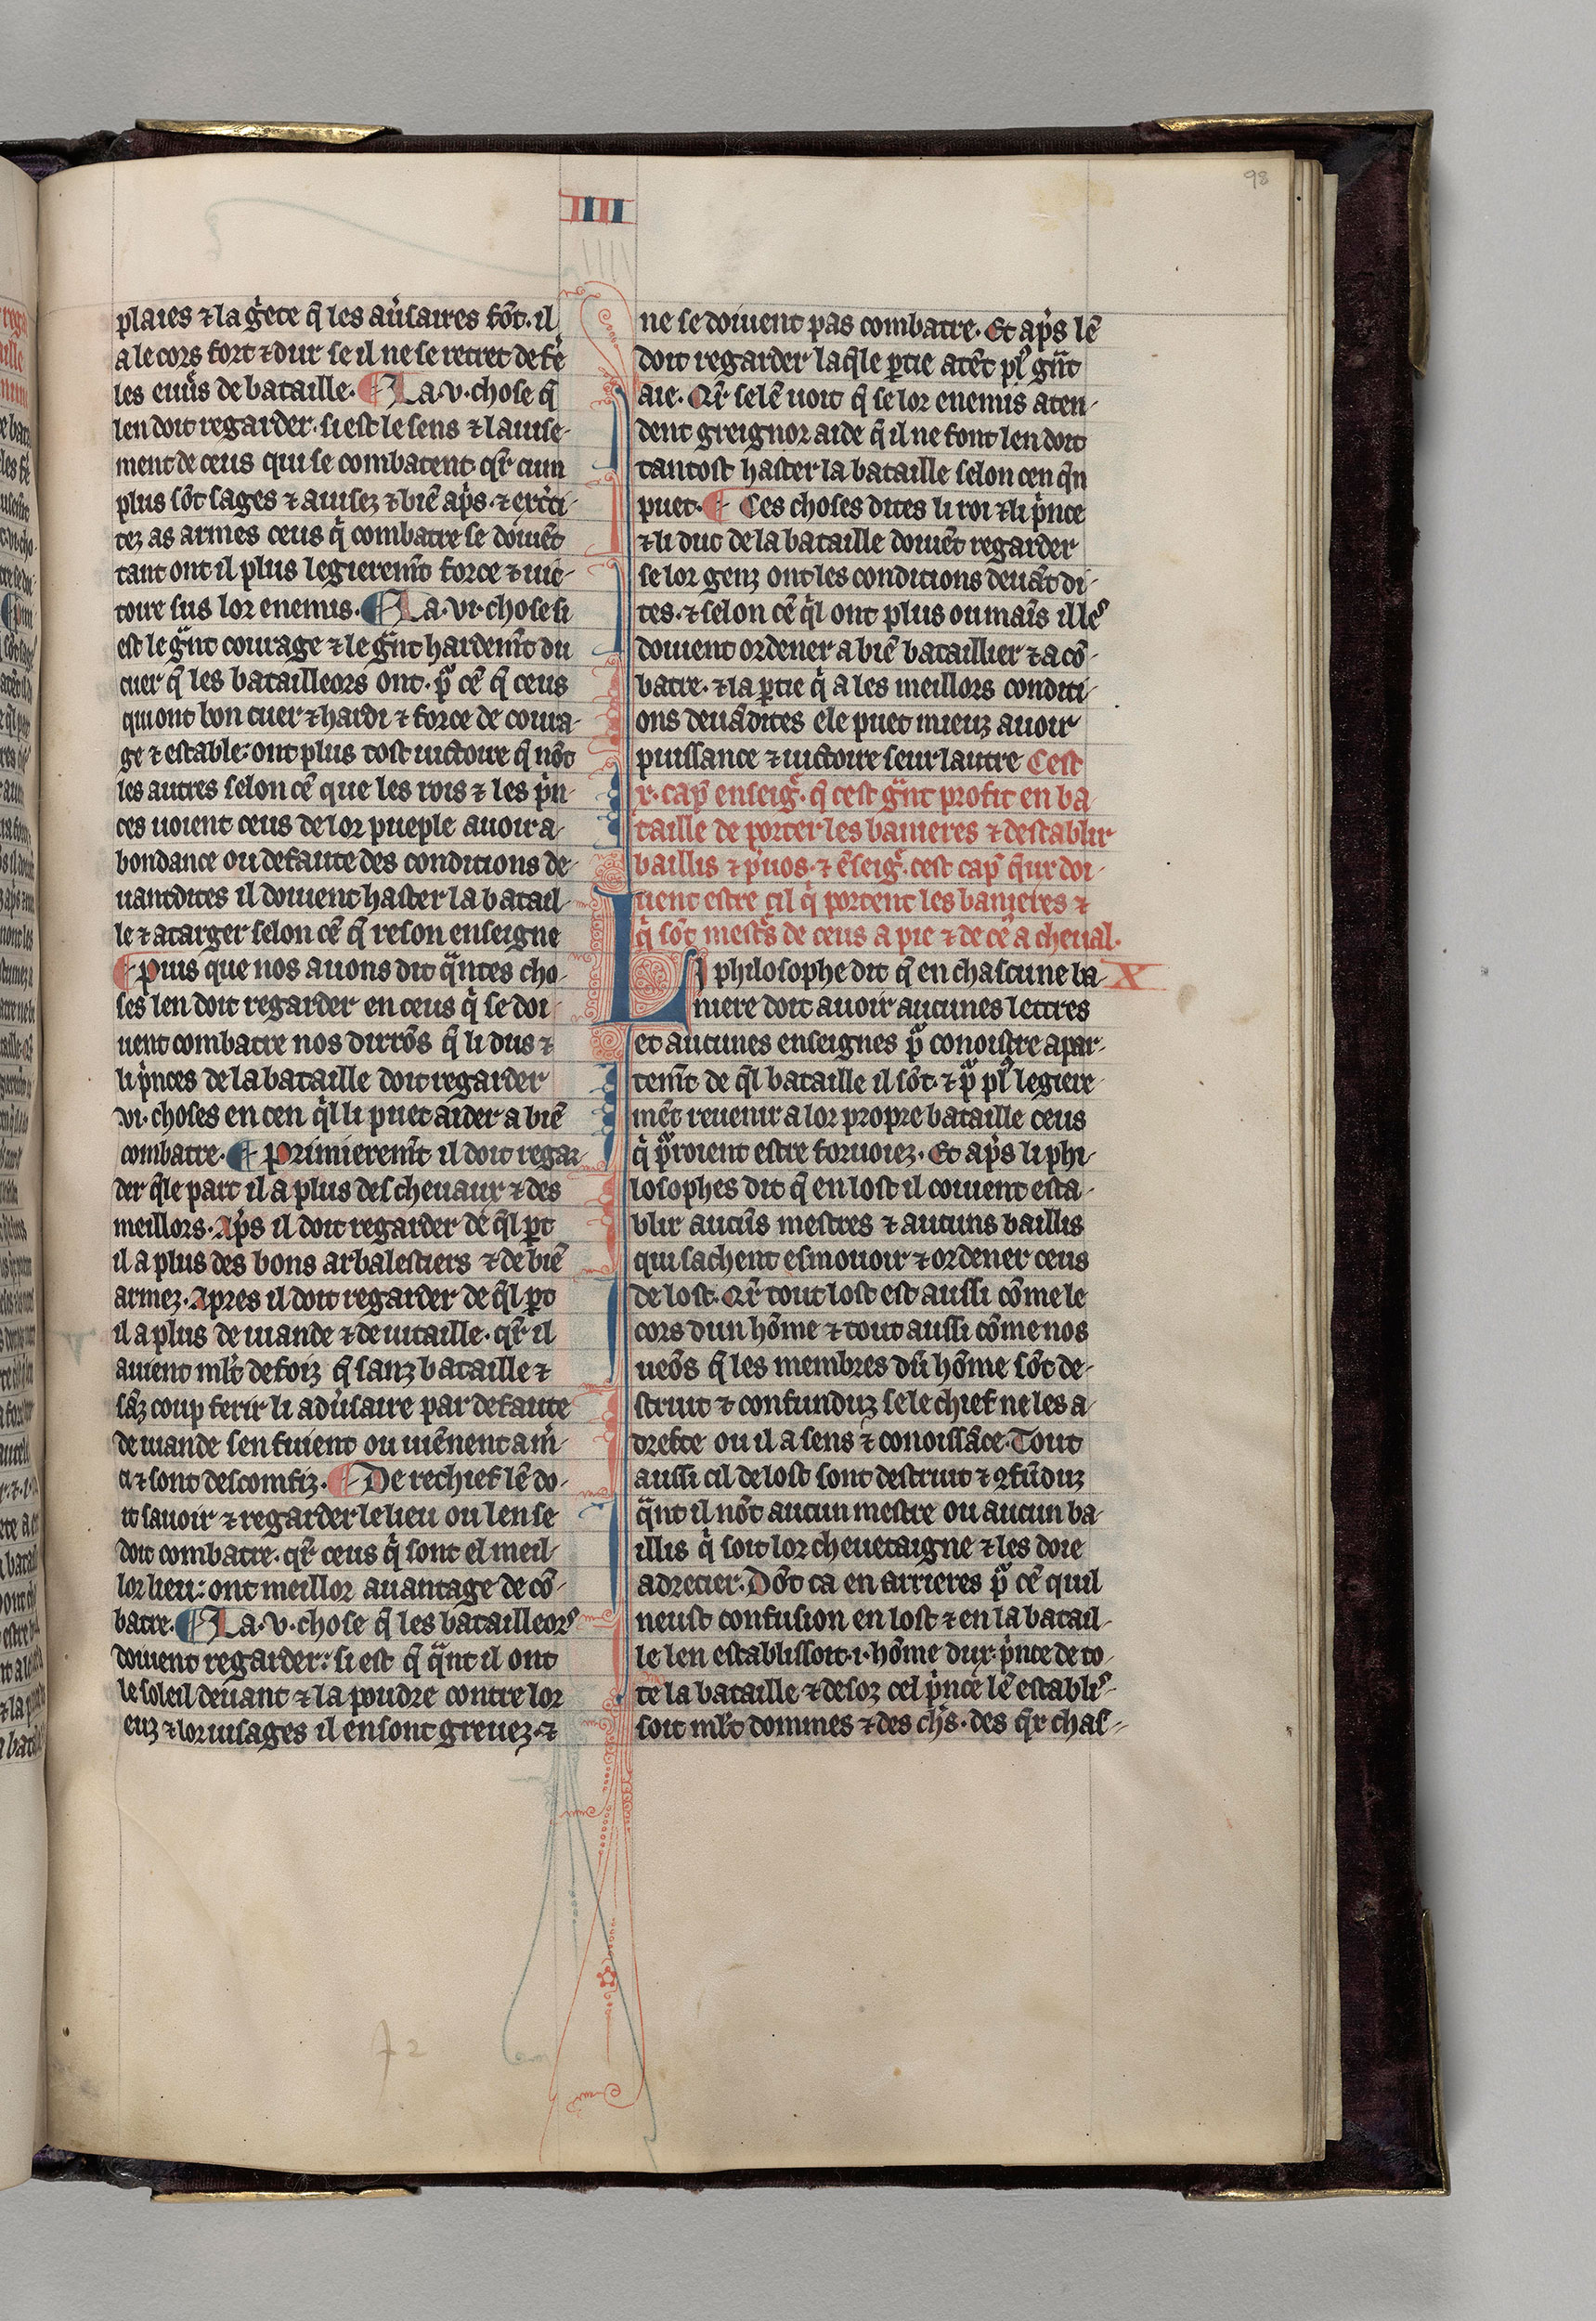 98
IIII
plaies ⁊ la g̾ece q̄ les au̾saires fōt. il
a le cors fort ⁊ dur se il ne se retret de fe̾
les euu̾s de bataille. ¶ La .v. chose q̄
len doit regarder. si est le sens ⁊ lauise-
ment de ceus qui se combatent. qr̄ cum
plus sōt sages ⁊ auisez ⁊ biē ap̾s. ⁊ erc̾ci-
tez as armes ceus q̇ combatre se doiuēt
tant ont il plus legierem̄t force ⁊ uic-
toire sus lor enemis. ¶ La .vi. chose si
est le gͣnt courage ⁊ le gͣnt hardem̄t du
cuer q̄ les batailleors ont. pͦ cē q̄ ceus
qui ont bon cuer ⁊ hardi ⁊ force de coura-
ge ⁊ estable: ont plus tost uictoire q̄ nōt
les autres selon cē que les rois ⁊ les ṗn-
ces uoient ceus de lor pueple auoir a-
bondance ou defaute des conditions de-
uantdites il doiuent haster la batail-
le ⁊ atarger selon cē q̄ reson enseigne
¶ Puis que nos auons dit qͣntes cho-
ses len doit regarder en ceus q̇ se doi-
uent combatre nos dirrōs q̄ li dus ⁊
li ṗnces de la bataille doit regarder
.vi. choses en cen q̄l li puet aider a biē
combatre. ¶ Primierem̄t il doit regar-
der q̄le part il a plus des cheuaux ⁊ des
meillors. Ap̾s il doit regarder de q̄l ꝑt
il a plus des bons arbalestiers ⁊ de biē
armez. Apres il doit regarder de q̄l ꝑt
il a plus de uiande ⁊ de uitaille. qr̄ il
auient ml̄t de foiz q̄ sanz bataille ⁊
sāz coup ferir li adu̾saire par defaute
de uiande sen fuient ou uiēnent a m̾-
ci ⁊ sont descomfiz. ¶ De rechief lē do-
it sauoir ⁊ regarder le lieu ou len se
doit combatre. qr̄ ceus q̇ sont el meil-
lor lieu: ont meillor auantage de cō-
batre. ¶ La .v. chose q̄ les batailleors
doiuent regarder: si est q̄ qͣnt il ont
le soleil deuant ⁊ la poudre contre lor
euz ⁊ lor uisages il en sont greuez. ⁊
ne se doiuent pas combatre. Et ap̾s lē
doit regarder laq̄le ꝑtie atēt plꝰ gͣnt
aie. Qr̄ se lē uoit q̄ se lor enemis aten-
dent greignor aide q̄ il ne font len doit
tantost haster la bataille selon cen q̄n
puet. ¶ Ces choses dites li roi ⁊ li ṗnce
⁊ li duc de la bataille doiuēt regarder
se lor genz ont les conditions deuāt di-
tes. ⁊ selon cē q̄l ont plus ou mains il les
doiuent ordener a biē bataillier ⁊ a cō-
batre. ⁊ la ꝑtie q̇ a les meillors conditi-
ons deuādites ele puet mieuz auoir
puissance ⁊ uictoire seur lautre Cest
x. cap̄ enseig̾. q̄ cest gͣnt profit en ba
taille de porter les banieres ⁊ destablir
baillis ⁊ p̾uos. ⁊ ēseig̾. cest cap̄ q̄ux doi-
uent estre cil q̇ portent les banieres ⁊
q̇ sōt mest̾s de ceus a pie ⁊ de cē a cheual.
Li philosophe dit q̄ en chascune ba- X
niere doit auoir aucunes lettres
et aucunes enseignes pͦ conoistre apar-
tem̄t de q̄l bataille il sōt. ⁊ pͦ plꝰ legiere-
mēt reuenir a lor propre bataille ceus
q̇ pͦroient estre foruoiez. Et ap̾s li phi-
losophes dit q̄ en lost il couient esta-
blir aucūs mestres ⁊ aucuns baillis
qui sachent esmouoir ⁊ ordener ceus
de lost. Qr̄ tout lost est aussi cōme le
cors dun hōme ⁊ tout aussi cōme nos
ueōs q̄ les membres dū hōme sōt de-
struit ⁊ confunduz se le chief ne les a-
dresce ou il a sens ⁊ conoissāce. Tout
aussi cil de lost sont destruit ⁊ ꝯfūduz
qͣnt il nōt aucun mestre ou aucun ba-
illis q̇ soit lor cheuetaigne ⁊ les doie
adrecier. Dōt ca en arrieres pͦ cē quil
neust confusion en lost ⁊ en la batail-
le len establissoit .i. hōme dux. ṗnce de to-
te la bataille ⁊ desoz cel ṗnce lē establis-
soit ml̄t dommes ⁊ des ch̾s. des q̄x chas-